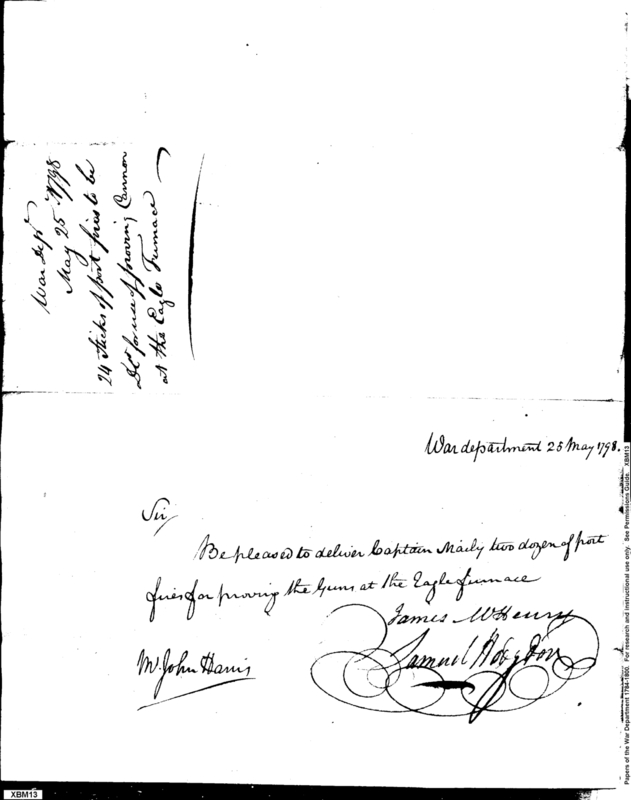 War dept
May 25 1798
24 sticks of port fires to be
Dd for use of proving Cannon
at the Eagle Furnace
War department 25 May 1798.
Sir
Be pleased to deliver Captain two dozen of port
fires for proving the Guns at the Eagle furnace
James McHenry
Samuel Hodgdon
Mr. John Harris
Papers of the War Department 1784-1800. For research and instructional use only. See Permissions Guide. XBM13
XBM13